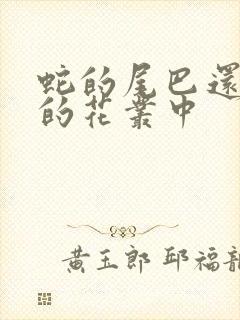 蛇的尾巴還
的花叢中
黃玉郎 邱福龍